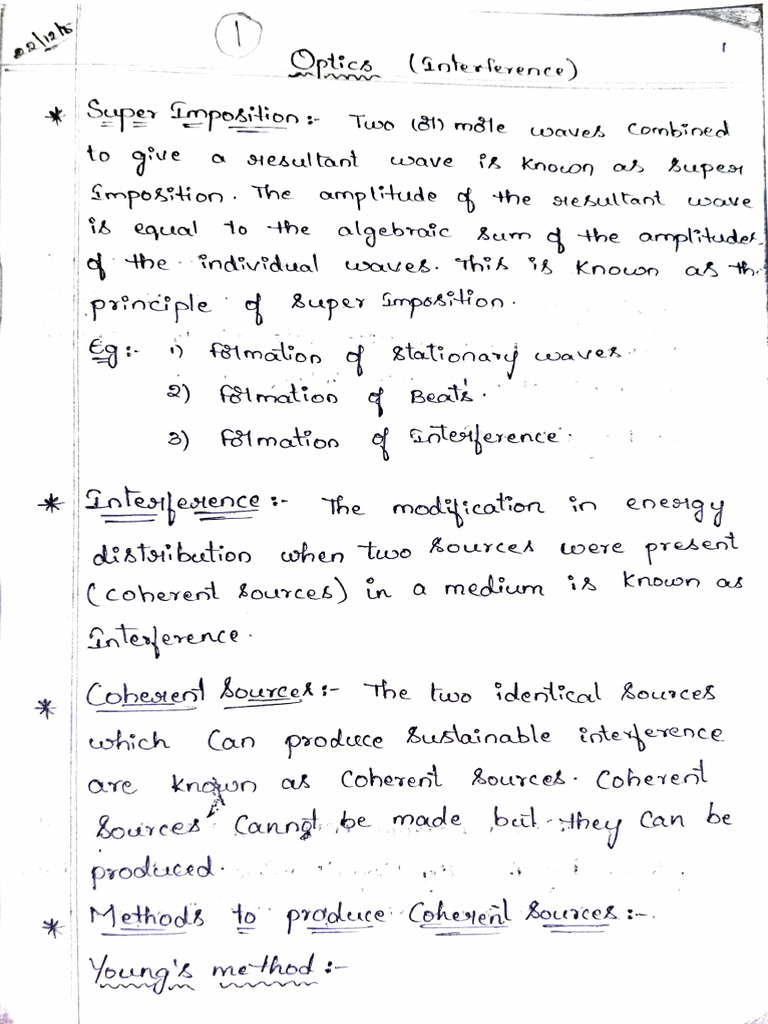 22/12/15
1
1
Optics (Interference)
* Super Imposition :- Two (or) more waves combined
to give a resultant wave is known as super
Imposition. The amplitude of the resultant wave
is equal to the algebraic sum of the amplitudes
of the individual waves. This is known as the
principle of super Imposition.
Eg :- 1) formation of stationary waves.
2) formation of Beats.
3) formation of Interference.
* Interference :- The modification in energy
distribution when two sources were present
(coherent sources) in a medium is known as
Interference.
* Coherent Sources :- The two identical sources
which can produce sustainable interference
are known as coherent sources. Coherent
sources cannot be made but they can be
produced.
* Methods to produce Coherent Sources :-
Young's method :-